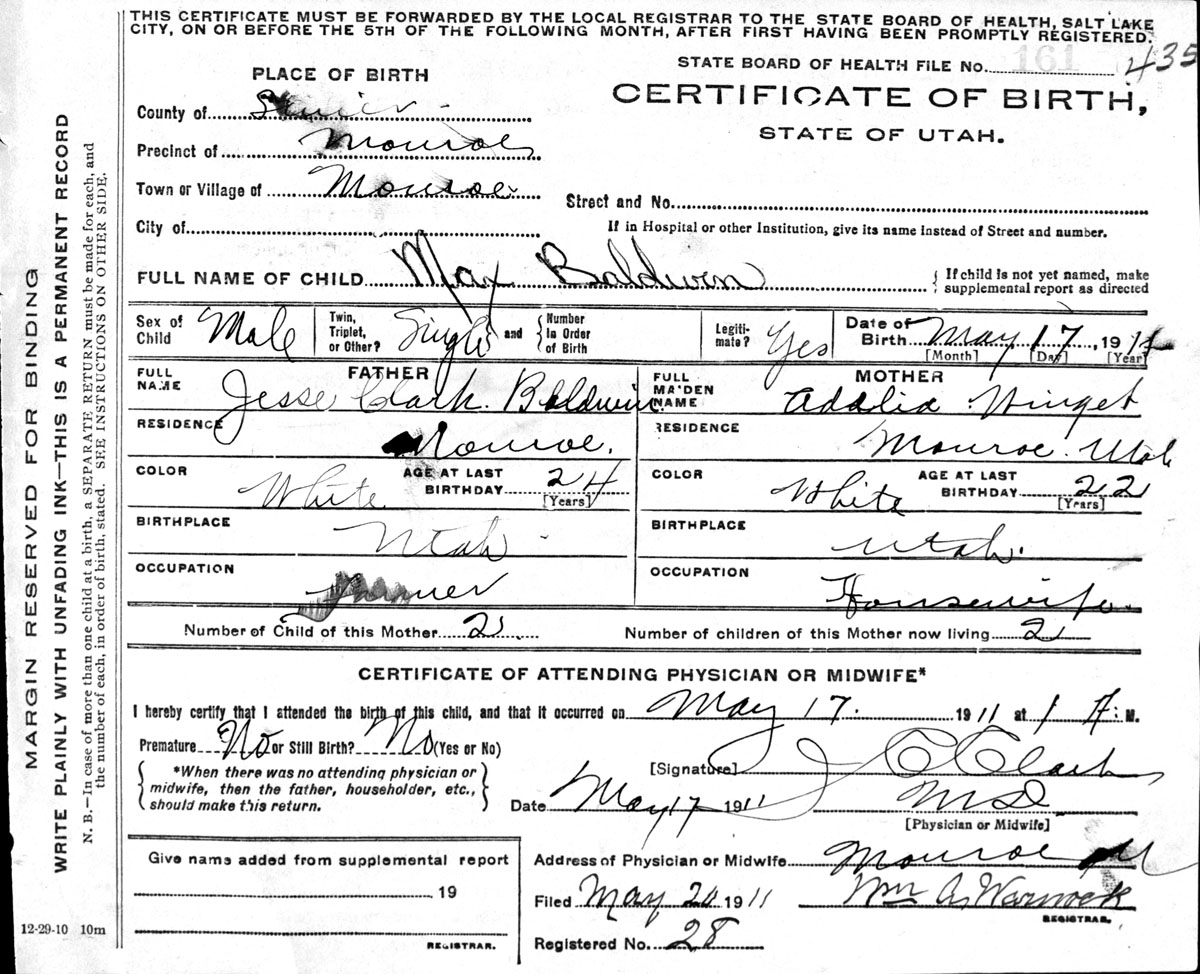 THIS CERTIFICATE MUST BE FORWARDED BY THE LOCAL REGISTRAR TO THE STATE BOARD OF HEALTH, SALT LAKE
CITY, ON OR BEFORE THE 5TH OF THE FOLLOWING MONTH, AFTER FIRST HAVING BEEN PROMPTLY REGISTERED.
STATE BOARD OF HEALTH FILE No. 161 435
PLACE OF BIRTH
CERTIFICATE OF BIRTH,
STATE OF UTAH.
County of Sevier
Precinct of Monroe
Town or Village of Monroe
Street and No.
City of
If in Hospital or other Institution, give its name instead of Street and number.
FULL NAME OF CHILD Max Baldwin
{ If child is not yet named, make
supplemental report as directed
Sex of Child Male
Twin, Triplet, or Other? Single and { Number in Order of Birth
Legiti-mate? Yes
Date of Birth May 17, 1911
[Month] [Day] [Year]
FATHER
FULL NAME Jesse Clark Baldwin
MOTHER
FULL MAIDEN NAME Adalia Winget
RESIDENCE Monroe.
RESIDENCE Monroe Utah
COLOR White AGE AT LAST BIRTHDAY 24 [Years]
COLOR White AGE AT LAST BIRTHDAY 22 [Years]
BIRTHPLACE Utah
BIRTHPLACE Utah.
OCCUPATION Farmer
OCCUPATION Housewife.
Number of Child of this Mother 2 Number of children of this Mother now living 2
CERTIFICATE OF ATTENDING PHYSICIAN OR MIDWIFE*
I hereby certify that I attended the birth of this child, and that it occurred on May 17. 1911 at 1 A. M.
Premature No or Still Birth? No (Yes or No)
[Signature] J C Clark
{ *When there was no attending physician or
midwife, then the father, householder, etc.,
should make this return. }
Date May 17 1911 MD
[Physician or Midwife]
Give name added from supplemental report
19
REGISTRAR.
Address of Physician or Midwife Monroe
Filed May 20 1911 Wm A Warnock
REGISTRAR.
Registered No. 28
MARGIN RESERVED FOR BINDING
WRITE PLAINLY WITH UNFADING INK—THIS IS A PERMANENT RECORD
N. B.—In case of more than one child at a birth, a SEPARATE RETURN must be made for each, and
the number of each, in order of birth, stated. SEE INSTRUCTIONS ON OTHER SIDE.
12-29-10 10m